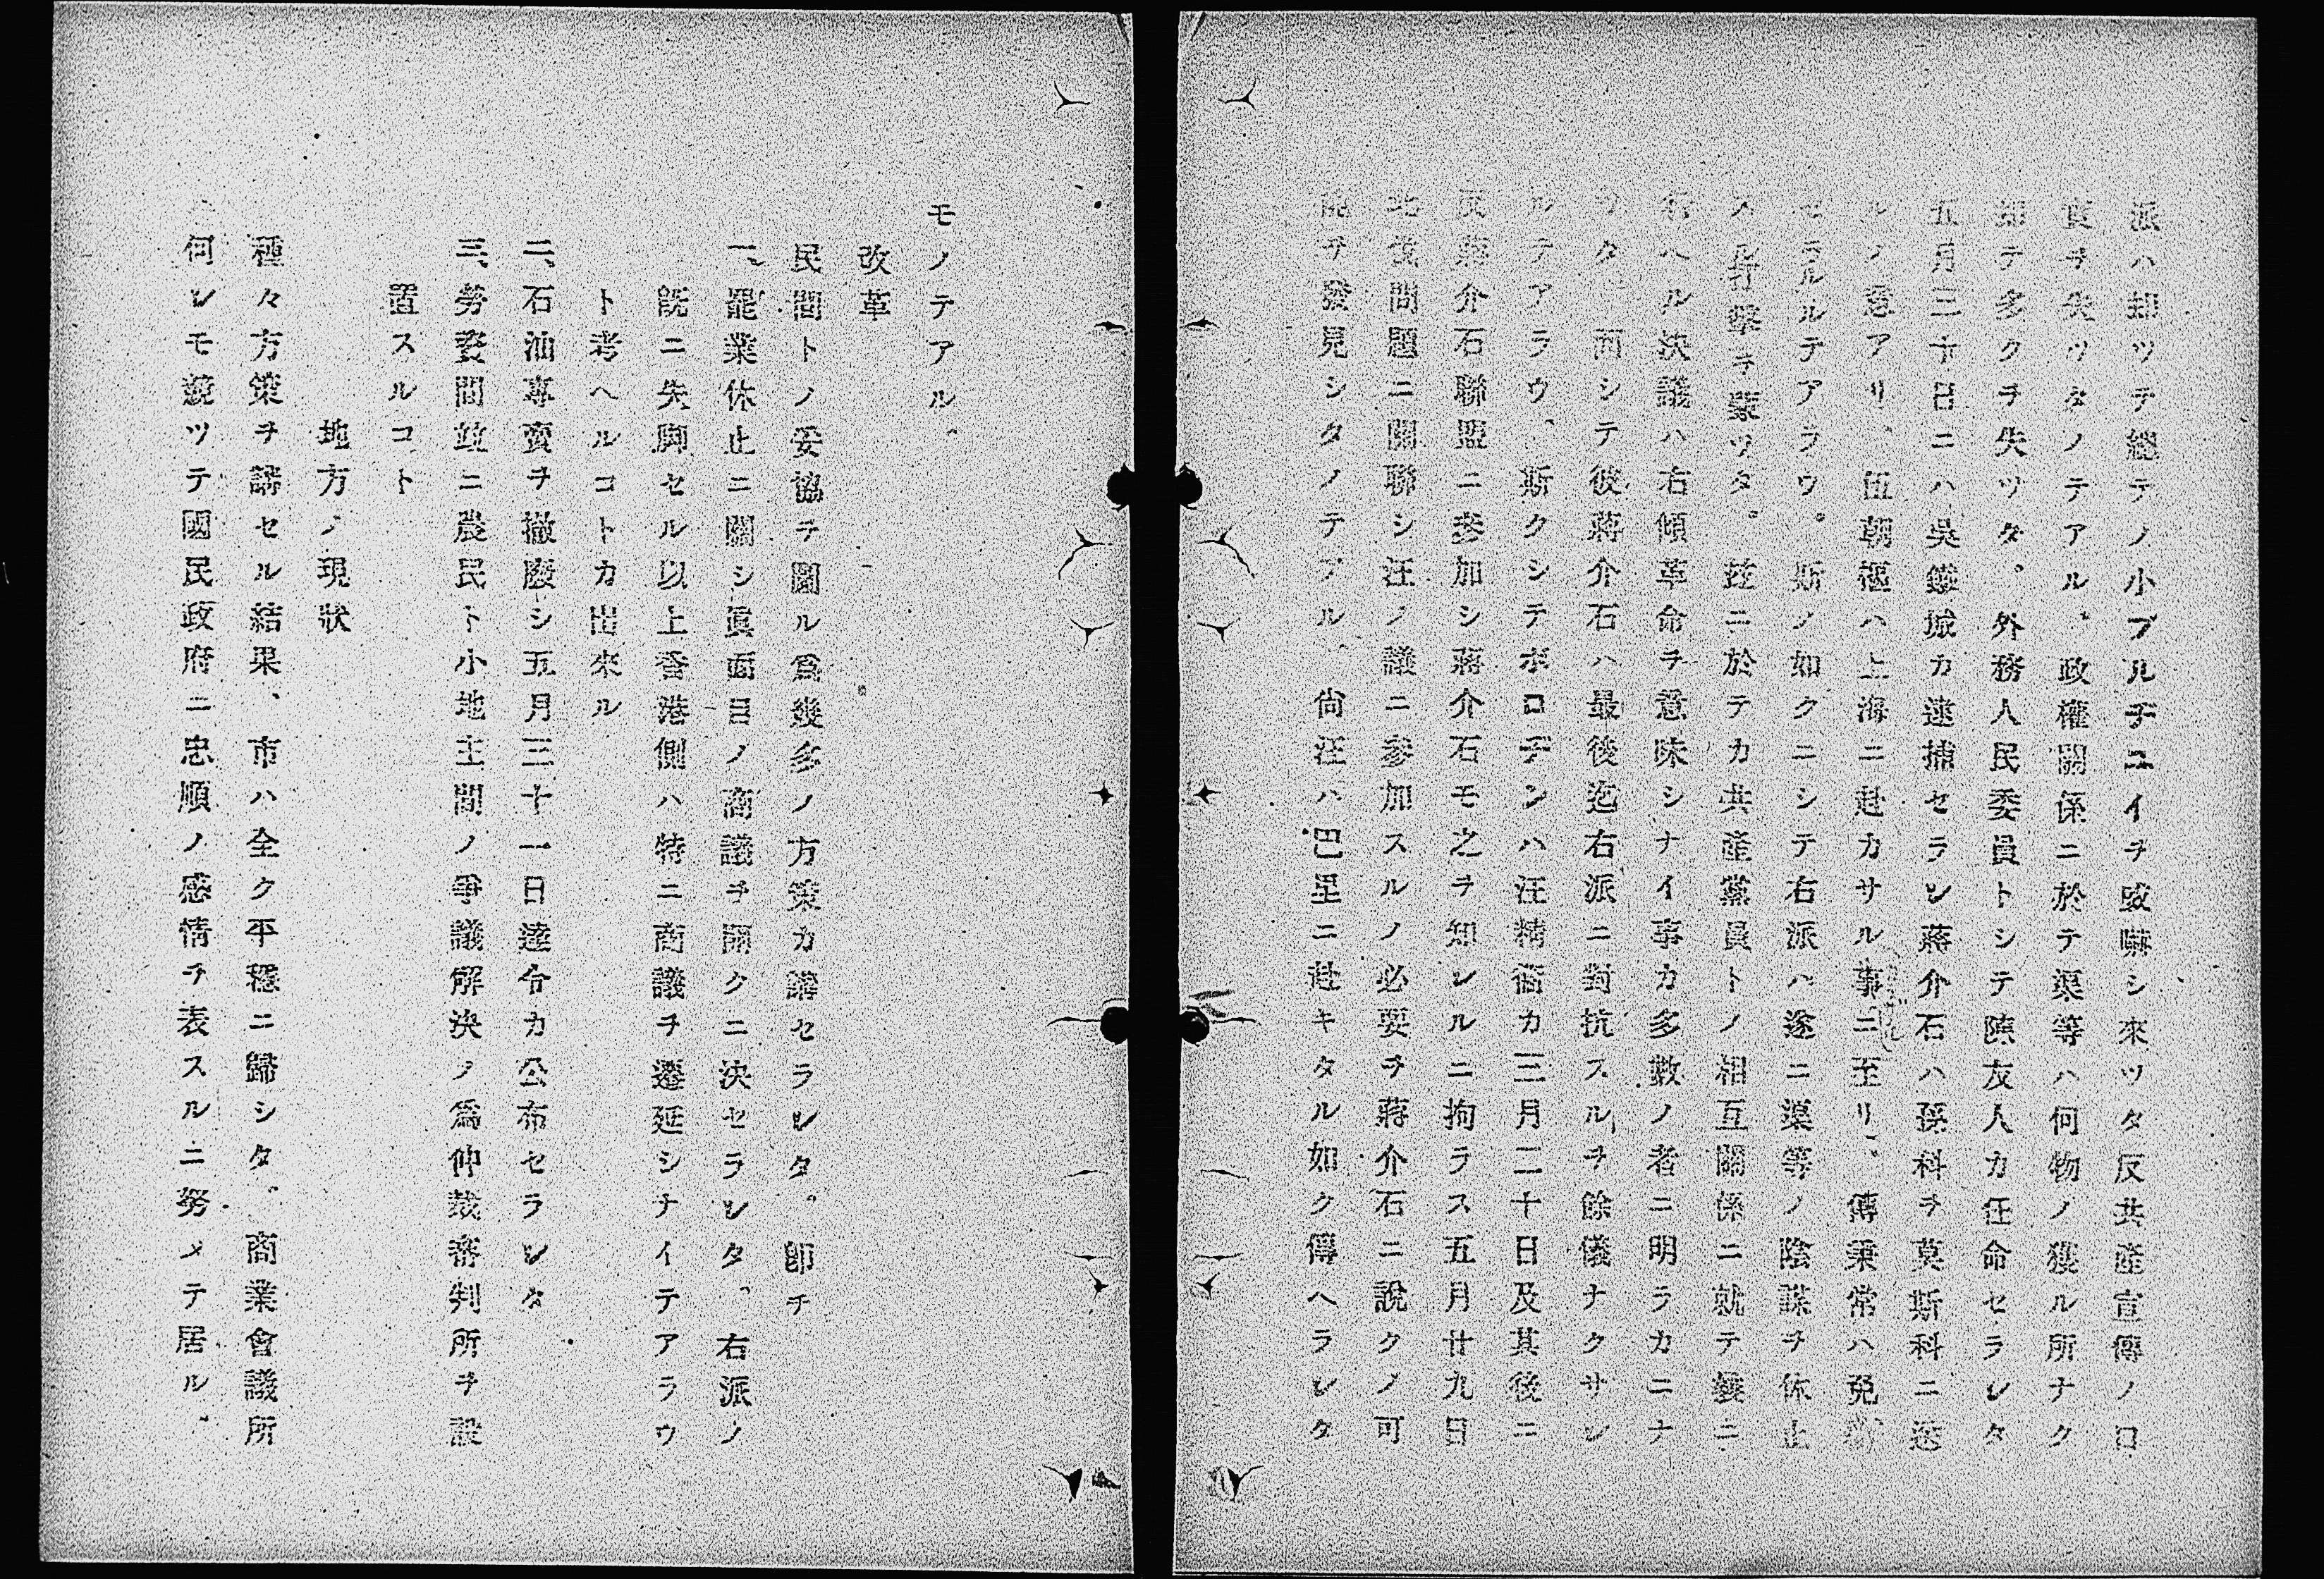 派ハ却ツテ總テノ小ブルヂユイヲ威嚇シ來ツタ反共產宣傳ノ口
實ヲ失ツタノテアル。政權關係ニ於テ渠等ハ何物ノ獲ル所ナク
却テ多クヲ失ツタ。外務人民委員トシテ陳友人カ任命セラレタ
五月三十日ニハ吳鐵城カ逮捕セラレ蔣介石ハ孫科ヲ莫斯科ニ送
ルノ意アリ、伍朝樞ハ上海ニ赴カサル事ニ至リ、傅秉常ハ免
セラルルテアラウ。斯ノ如クニシテ右派ハ遂ニ渠等ノ陰謀ヲ休止
打擊ヲ蒙ツタ。茲ニ於テカ共產黨員トノ相互關係ニ就テ與ニ
ヘル決議ハ右傾革命ヲ意味シナイ事カ多數ノ者ニ明ラカニナ
ツタ 而シテ彼蔣介石ハ最後迄右派ニ對抗スルヲ餘儀ナクサレ
ルテアラウ、斯クシテボロヂンハ汪精衞カ三月二十日及其後ニ
反蔣介石聯盟ニ參加シ蔣介石モ之ヲ知レルニ拘ラス五月廿九日
北伐問題ニ關聯シ汪ノ議ニ參加スルノ必要ヲ蔣介石ニ說クノ可
能ヲ發見シタノテアル、尙汪ハ巴里ニ赴キタル如ク傳ヘラレタ
モノテアル。
改革
民間トノ妥協ヲ圖ル爲幾多ノ方策カ講セラレタ。卽チ
一、罷業休止ニ關シ眞面目ノ商議ヲ開クニ決セラレタ、右派ノ
旣ニ失脚セル以上香港側ハ特ニ商議ヲ遷延シナイテアラウ
ト考ヘルコトカ出來ル
二、石油專賣ヲ撤廢シ五月三十一日達令カ公布セラレタ
三、勞資間竝ニ農民ト小地主間ノ爭議解決ノ爲仲裁審判所ヲ設
置スルコト
地方ノ現狀
種々方策ヲ講セル結果、市ハ全ク平穩ニ歸シタ、商業會議所
何レモ競ツテ國民政府ニ忠順ノ感情ヲ表スルニ努メテ居ル。